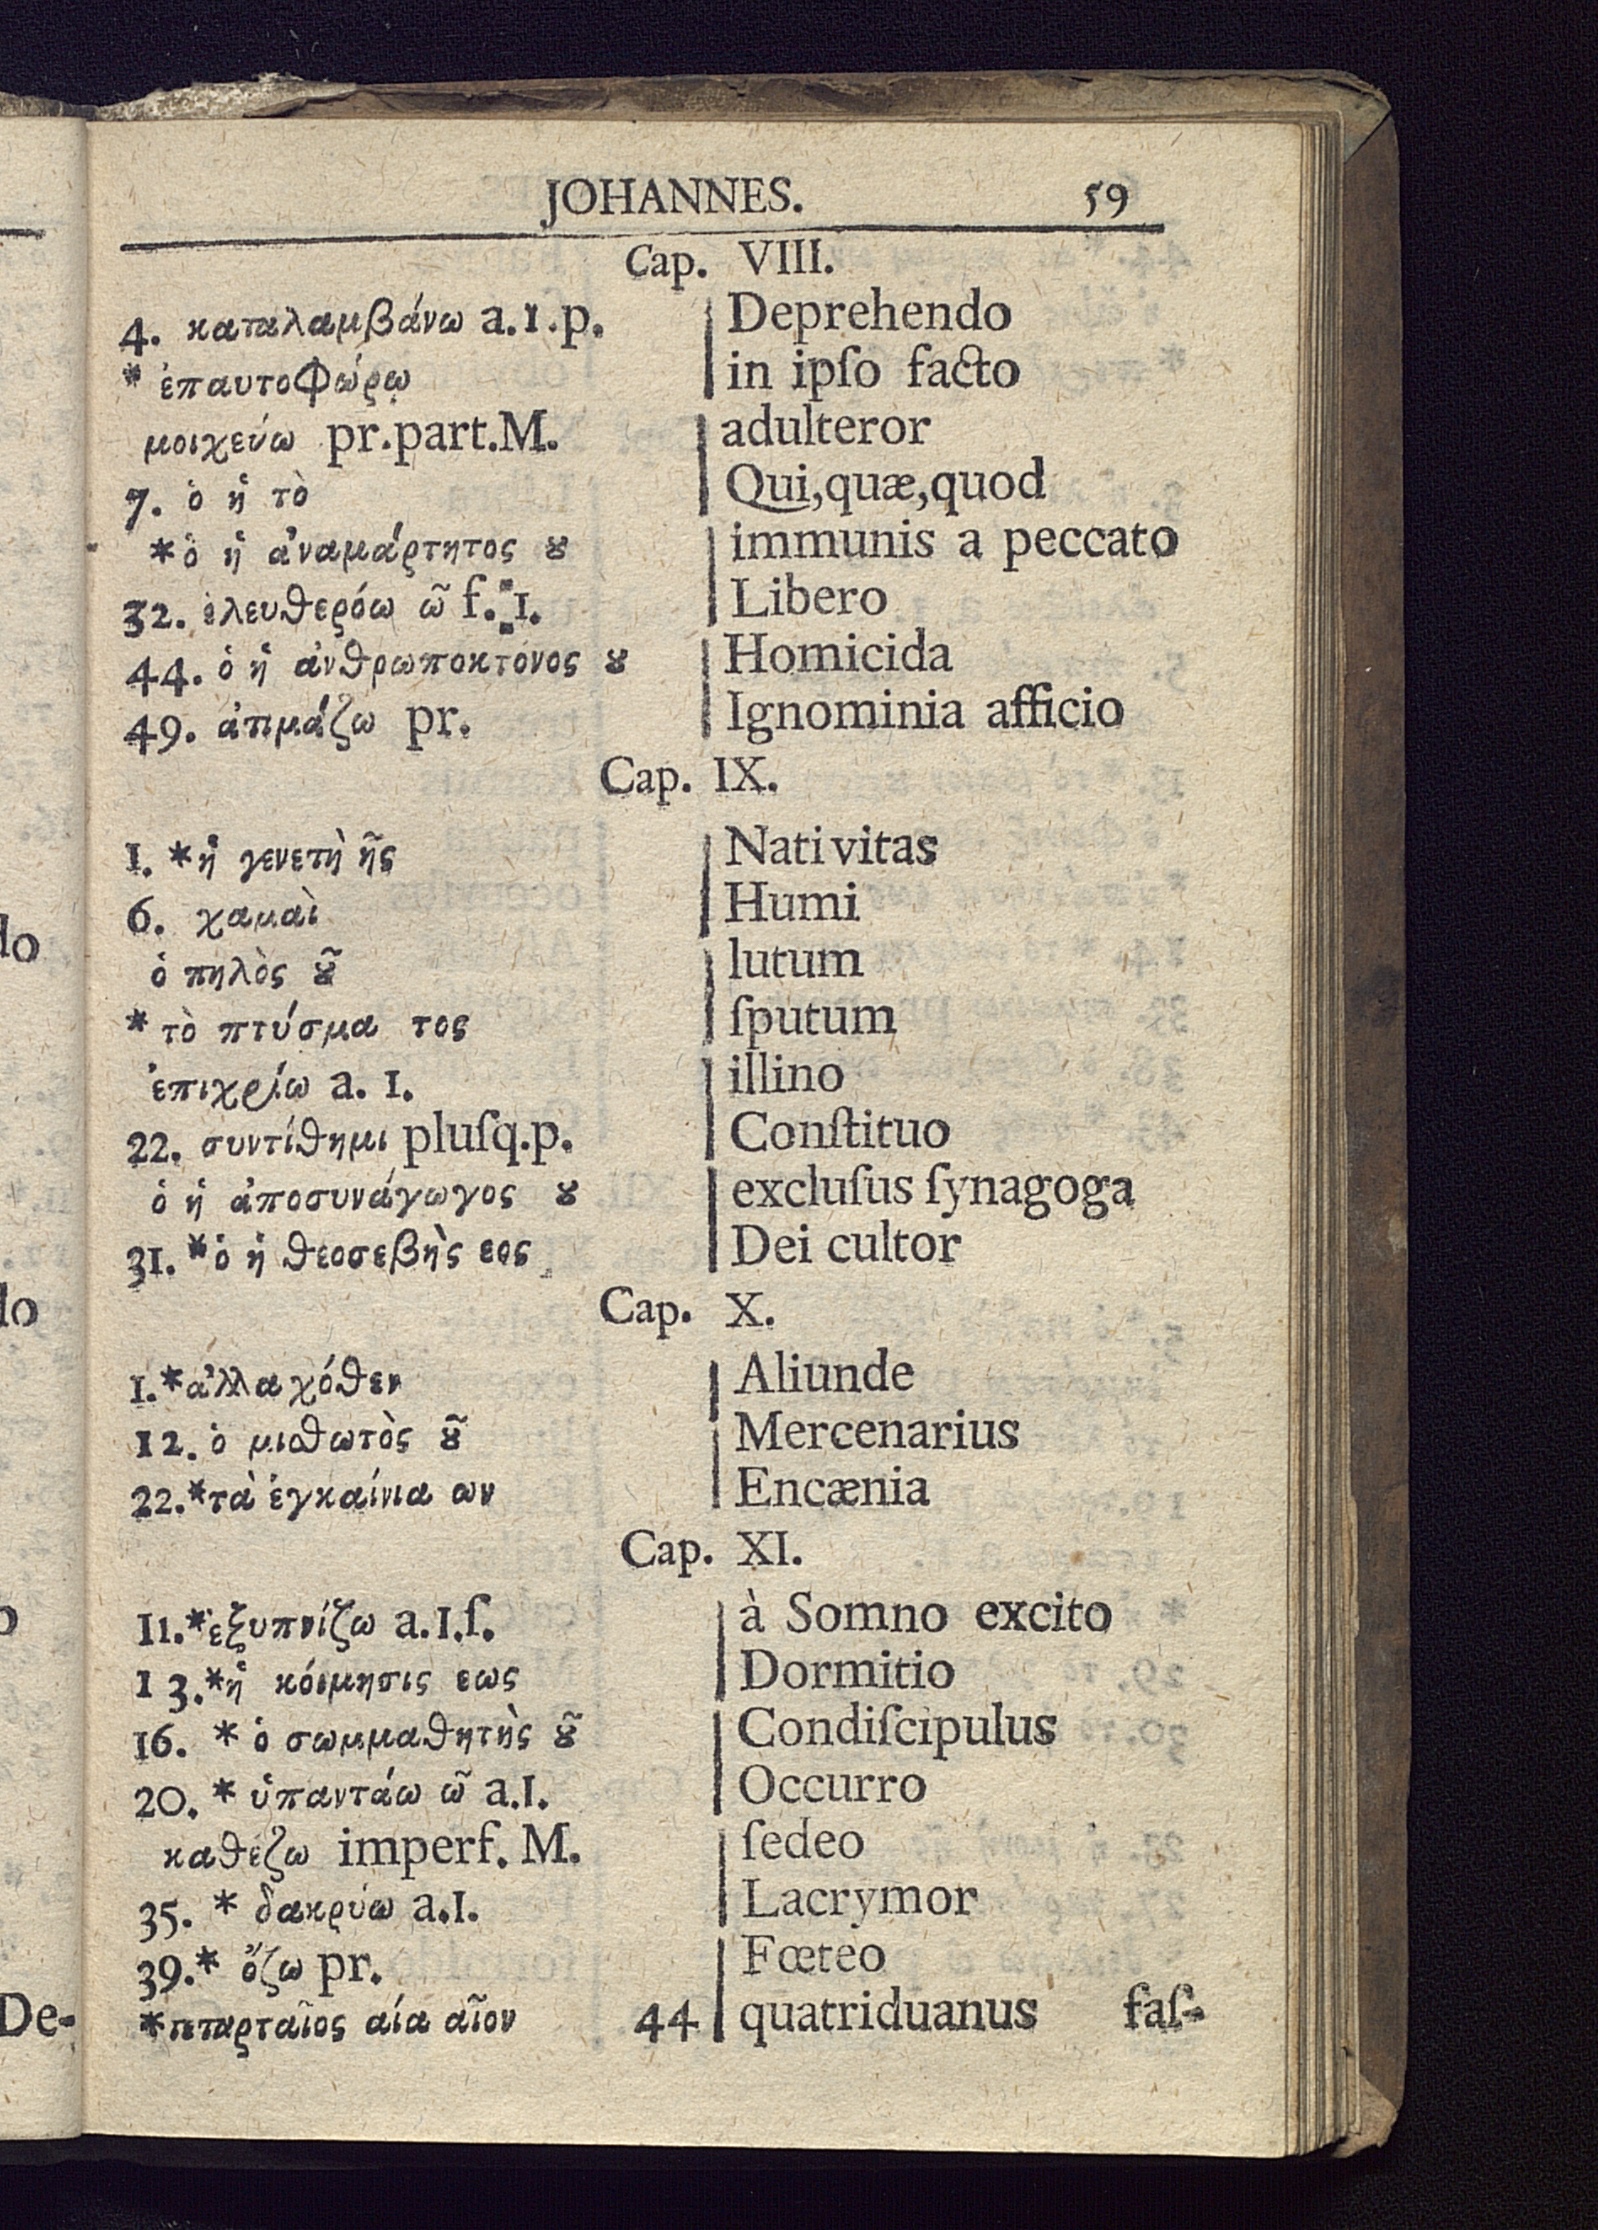 JOHANNES. 59
Cap. VIII.
4. καταλαμβάνω a.1.p. Deprehendo
* ἐπαυτοφώρῳ in ipſo facto
μοιχεύω pr.part.M. adulteror
7. ὁ ἡ τὸ Qui,quæ,quod
*ὁ ἡ ἀναμάρτητος ȣ immunis a peccato
32. ἐλευθερόω ῶ f. 1. Libero
44. ὁ ἡ ἀνθρωποκτόνος ȣ Homicida
49. ἀτιμάζω pr. Ignominia afficio
Cap. IX.
1. *ἡ γενετὴ ῆς Nativitas
6. χαμαὶ Humi
ὁ πηλὸς ȣ͂ lutum
* τὸ πτύσμα τος ſputum
ἐπιχρίω a. 1. illino
22. συντίθημι pluſq.p. Conſtituo
ὁ ἡ ἀποσυνάγωγος ȣ excluſus ſynagoga
31. *ὁ ἡ θεοσεβὴς εος Dei cultor
Cap. X.
1.*ἀλλαχόθεν Aliunde
12. ὁ μισθωτὸς ȣ͂ Mercenarius
22.*τὰ ἐγκαίνια ων Encænia
Cap. XI.
11.*ἐξυπνίζω a.1.ſ. à Somno excito
13.*ἡ κόιμησις εως Dormitio
16. * ὁ συμμαθητὴς ȣ͂ Condiſcipulus
20. * ὑπαντάω ῶ a.1. Occurro
καθέζω imperf. M. ſedeo
35. * δακρύω a.1. Lacrymor
39.* ὄζω pr. Fœteo
*τεταρταῖος αία αῖον 44 quatriduanus faſ-
do
do
De-